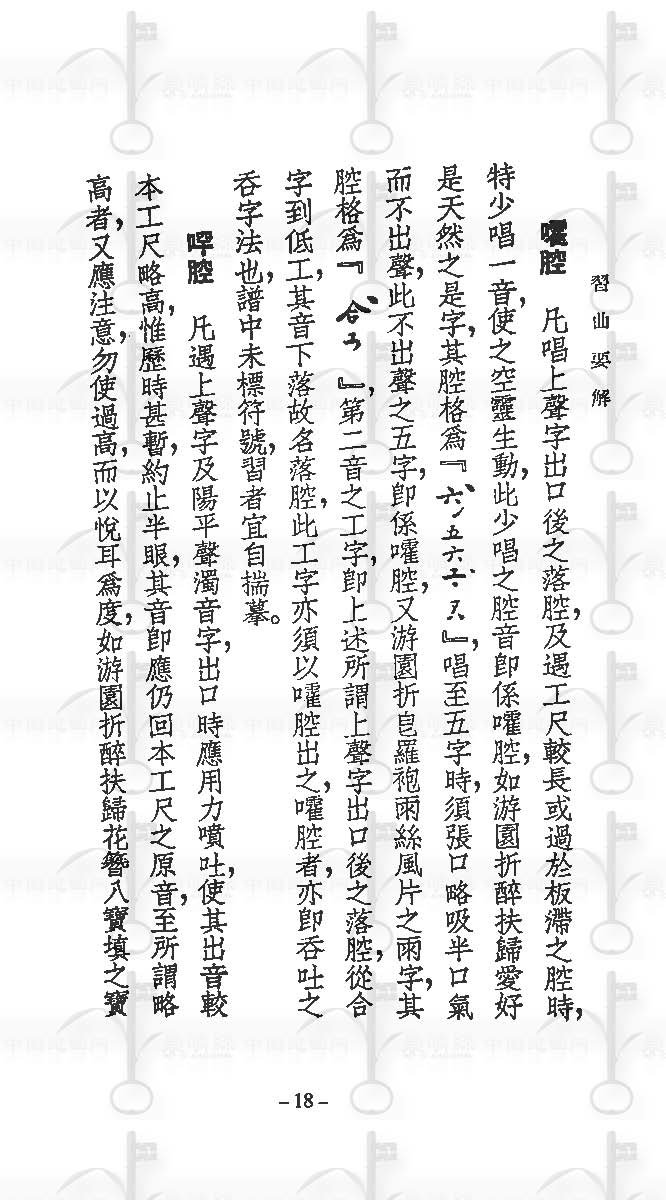 習曲要解
嚯腔　凡唱上聲字出口後之落腔，及遇工尺較長或過於板滯之腔時，
特少唱一音，使之空靈生動，此少唱之腔音卽係嚯腔，如游園折醉扶歸愛好
是天然之是字，其腔格爲『六五六六·尺』，唱至五字時，須張口略吸半口氣
而不出聲，此不出聲之五字，卽係嚯腔，又游園折皂羅袍雨絲風片之雨字，其
腔格爲『合工』，第二音之工字，卽上述所謂上聲字出口後之落腔，從合
字到低工，其音下落故名落腔，此工字亦須以嚯腔出之，嚯腔者，亦卽吞吐之
吞字法也，譜中未標符號，習者宜自揣摹。
㖕腔　凡遇上聲字及陽平聲濁音字，出口時應用力噴吐，使其出音較
本工尺略高，惟歷時甚暫，約止半眼，其音卽應仍回本工尺之原音，至所謂略
高者，又應注意，勿使過高，而以悅耳爲度，如游園折醉扶歸花簪八寶填之寶
-18-